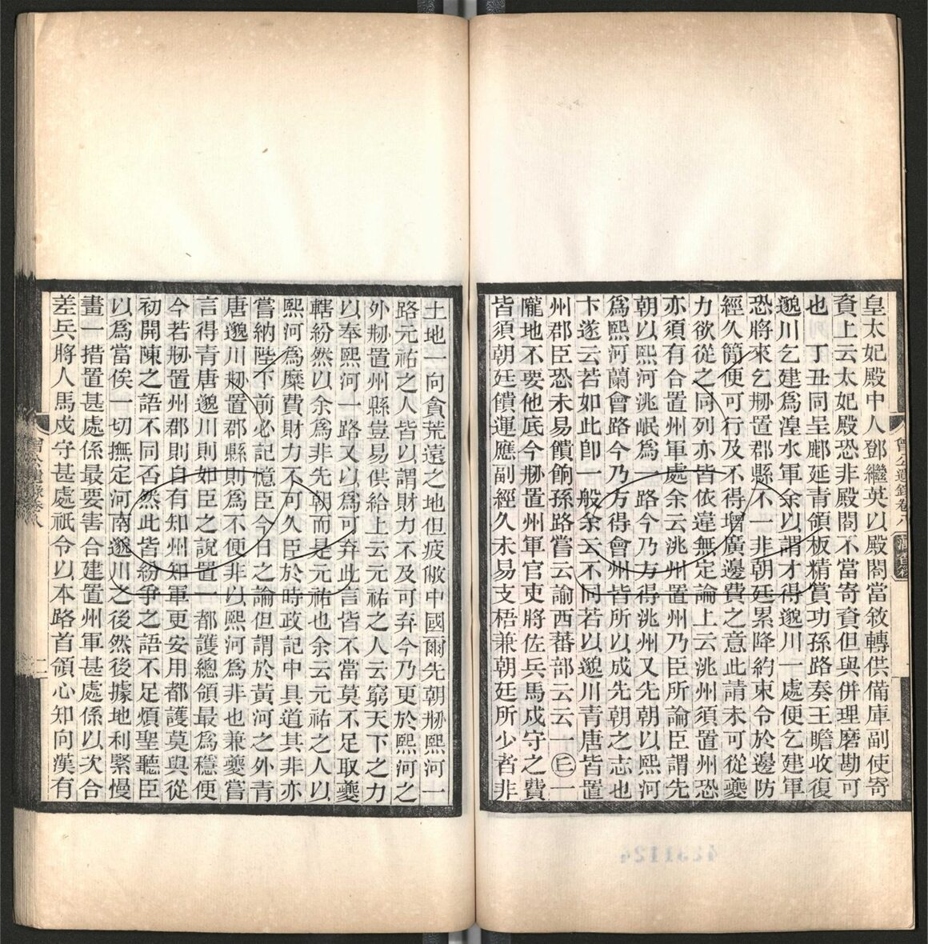 皇太妃殿中人鄧繼英以殿閤當敘轉供備庫副使寄
資上云太妃殿恐非殿閤不當寄資但與併理磨勘可
也　丁丑同呈鄜延青領板精賞功孫路奏王瞻收復
邈川乞建爲湟水軍余以謂才得邈川一處便乞建軍
恐將來乞剏置郡縣不一非朝廷累降約束令於邊防
經久簡便可行及不得增廣邊費之意此請未可從夔
力欲從之同列亦皆依違無定論上云洮州須置州恐
亦須有合置州軍處余云洮州置州乃臣所論臣謂先
朝以熙河洮岷爲一路今乃方得洮州又先朝以熙河
爲熙河蘭會路今乃方得會州皆所以成先朝之志也
卞遂云若如此卽一般余云不同若以邈川青唐皆置
州郡臣恐未易饋餉孫路嘗云諭西蕃部云云一㊂一
隴地不要他底今剏置州軍官吏將佐兵馬戍守之費
皆須朝廷饋運應副經久未易支梧兼朝廷所少者非
曾公遺錄卷八
土地一向貪荒遠之地但疲敝中國爾先朝剏熙河一
路元祐之人皆以謂財力不及可弃今乃更於熙河之
外剏置州縣豈易供給上云元祐之人云窮天下之力
以奉熙河一路又以爲可弃此言皆不當莫不足取夔
轄紛然以余爲非先朝而是元祐也余云元祐之人以
熙河爲糜費財力不可久臣於時政記中具道其非亦
嘗納陛下前必記憶臣今日之論但謂於黃河之外青
唐邈川剏置郡縣則爲不便非以熙河爲非也兼夔嘗
言得青唐邈川則如臣之說置一都護總領最爲穩便
今若剏置州郡則自有知州知軍更安用都護莫與從
初開陳之語不同否然此皆紛爭之語不足煩聖聽臣
以爲當俟一切撫定河南邈川之後然後據地利緊慢
畫一措置甚處係最要害合建置州軍甚處係以次合
差兵將人馬戍守甚處祇令以本路首領心知向漢有
曾公遺錄卷八
二